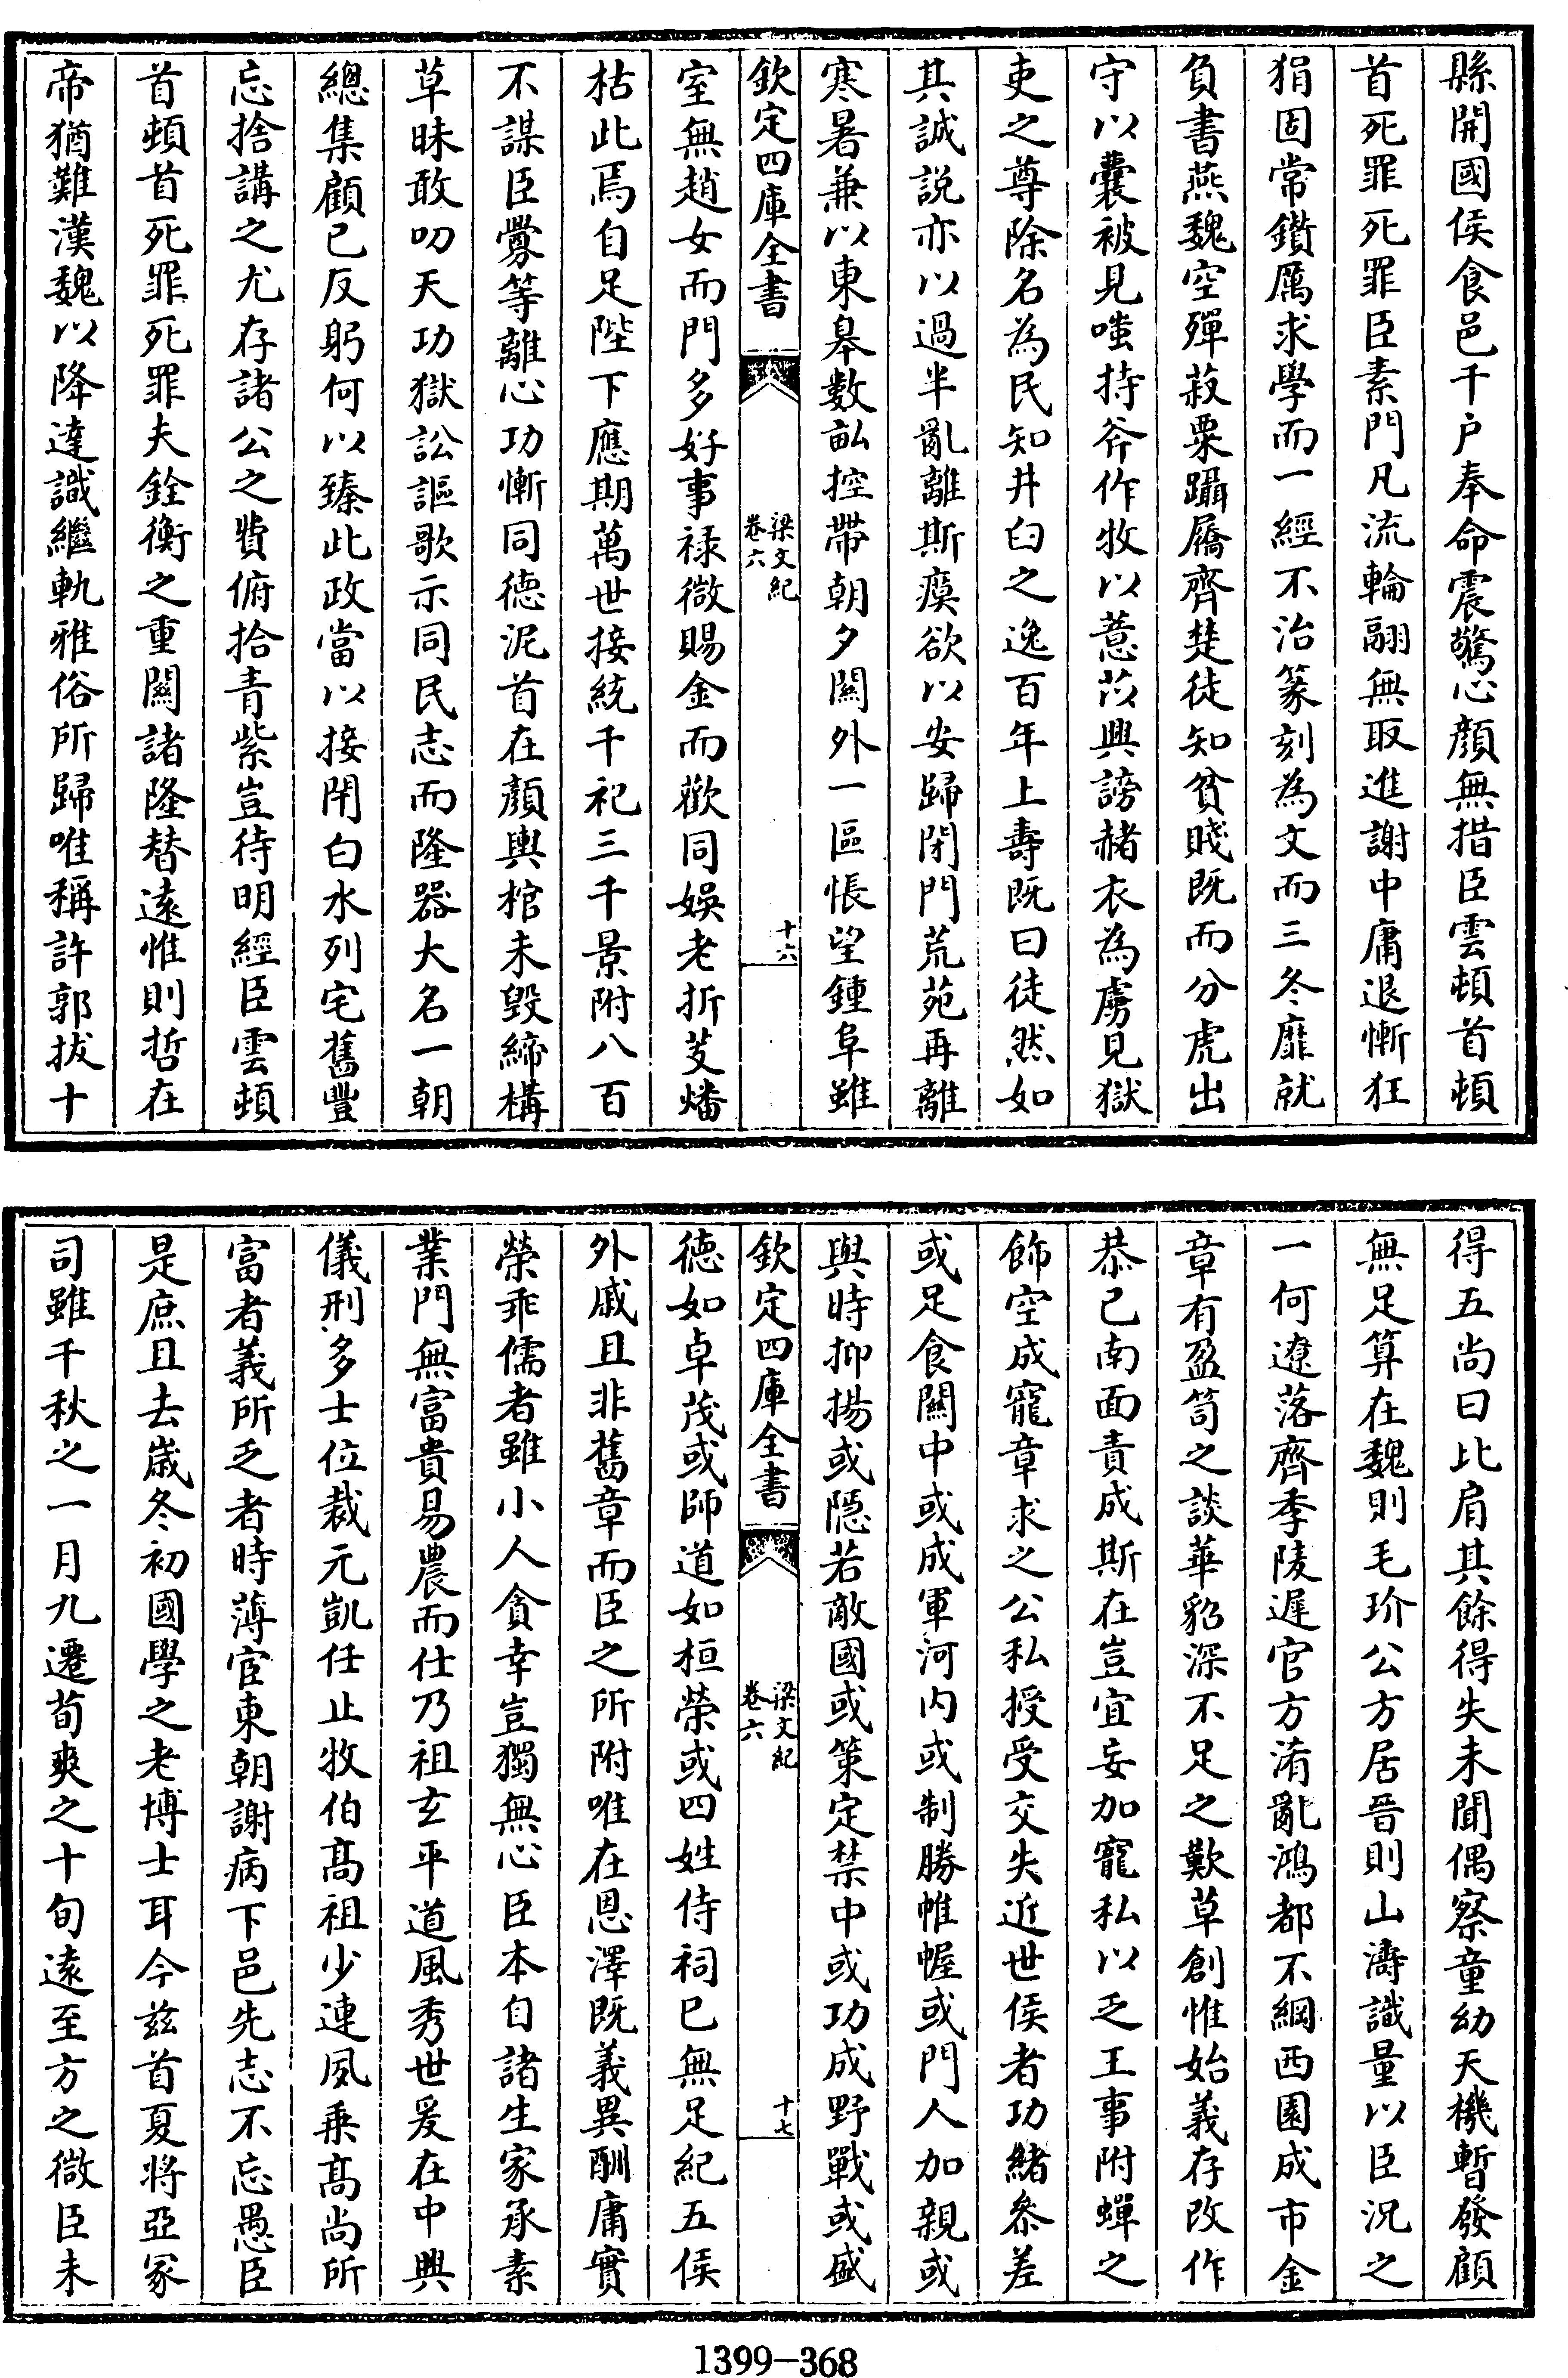 縣開國侯食邑千户奉命震驚心顔無措臣雲頓首頓
首死罪死罪臣素門凡流輪翮無取進謝中庸退慚狂
狷固常鑽厲求學而一經不治篆刻為文而三冬靡就
負書燕魏空殫菽粟躡屩齊楚徒知貧賤既而分虎出
守以囊被見嗤持斧作牧以薏苡興謗赭衣為虜見獄
吏之尊除名為民知井臼之逸百年上壽既曰徒然如
其誠説亦以過半亂離斯瘼欲以安歸閉門荒苑再離
寒暑兼以東臯數畝控帶朝夕關外一區悵望鍾阜雖
欽定四庫全書
梁文紀
卷六
十六
室無趙女而門多好事禄微賜金而歡同娛老折芰燔
枯此焉自足陛下應期萬世接統千祀三千景附八百
不謀臣釁等離心功慚同徳泥首在顔輿棺未毁締構
草昧敢叨天功獄訟謳歌示同民志而隆器大名一朝
總集顧已反躬何以臻此政當以接閈白水列宅舊豐
忘捨講之尤存諸公之費俯拾青紫豈待明經臣雲頓
首頓首死罪死罪夫銓衡之重關諸隆替逺惟則哲在
帝猶難漢魏以降達識繼軌雅俗所歸唯稱許郭拔十
得五尚曰比肩其餘得失未聞偶察童幼天機暫發顧
無足算在魏則毛玠公方居晉則山濤識量以臣況之
一何遼落齊季陵遲官方淆亂鴻都不綱西園成市金
章有盈笥之談華貂深不足之歎草創惟始義存改作
恭已南面責成斯在豈宜妄加寵私以乏王事附蟬之
飾空成寵章求之公私授受交失近世侯者功緒叅差
或足食關中或成軍河内或制勝帷幄或門人加親或
與時抑揚或隠若敵國或策定禁中或功成野戰或盛
欽定四庫全書
梁文紀
卷六
十七
徳如卓茂或師道如桓榮或四姓侍祠已無足紀五侯
外戚且非舊章而臣之所附唯在恩澤既義異酬庸實
榮乖儒者雖小人貪幸豈獨無心臣本自諸生家承素
業門無富貴易農而仕乃祖玄平道風秀世爰在中興
儀刑多士位裁元凱任止牧伯髙祖少連夙秉髙尚所
富者義所乏者時薄宦東朝謝病下邑先志不忘愚臣
是庶且去嵗冬初國學之老博士耳今兹首夏將亞冢
司雖千秋之一月九遷荀爽之十旬逺至方之微臣未
1399-368